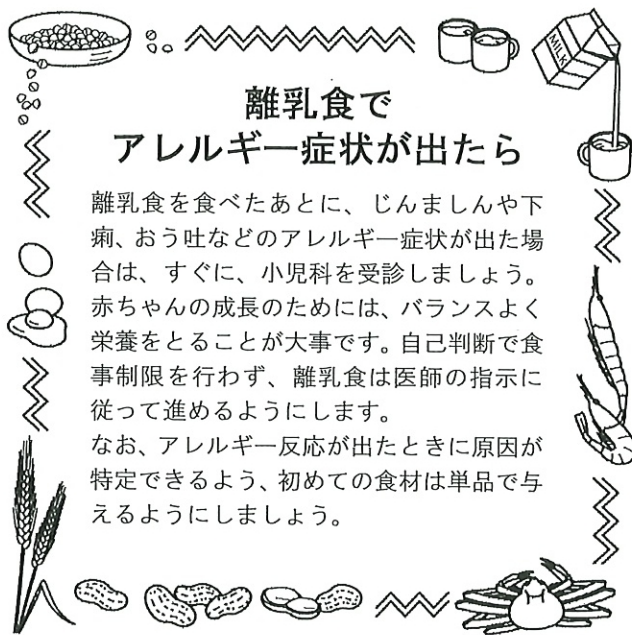 MILK
離乳食で
アレルギー症状が出たら
離乳食を食べたあとに、じんましんや下
痢、おう吐などのアレルギー症状が出た場
合は、すぐに、小児科を受診しましょう。
赤ちゃんの成長のためには、バランスよく
栄養をとることが大事です。自己判断で食
事制限を行わず、離乳食は医師の指示に
従って進めるようにします。
なお、アレルギー反応が出たときに原因が
特定できるよう、初めての食材は単品で与
えるようにしましょう。